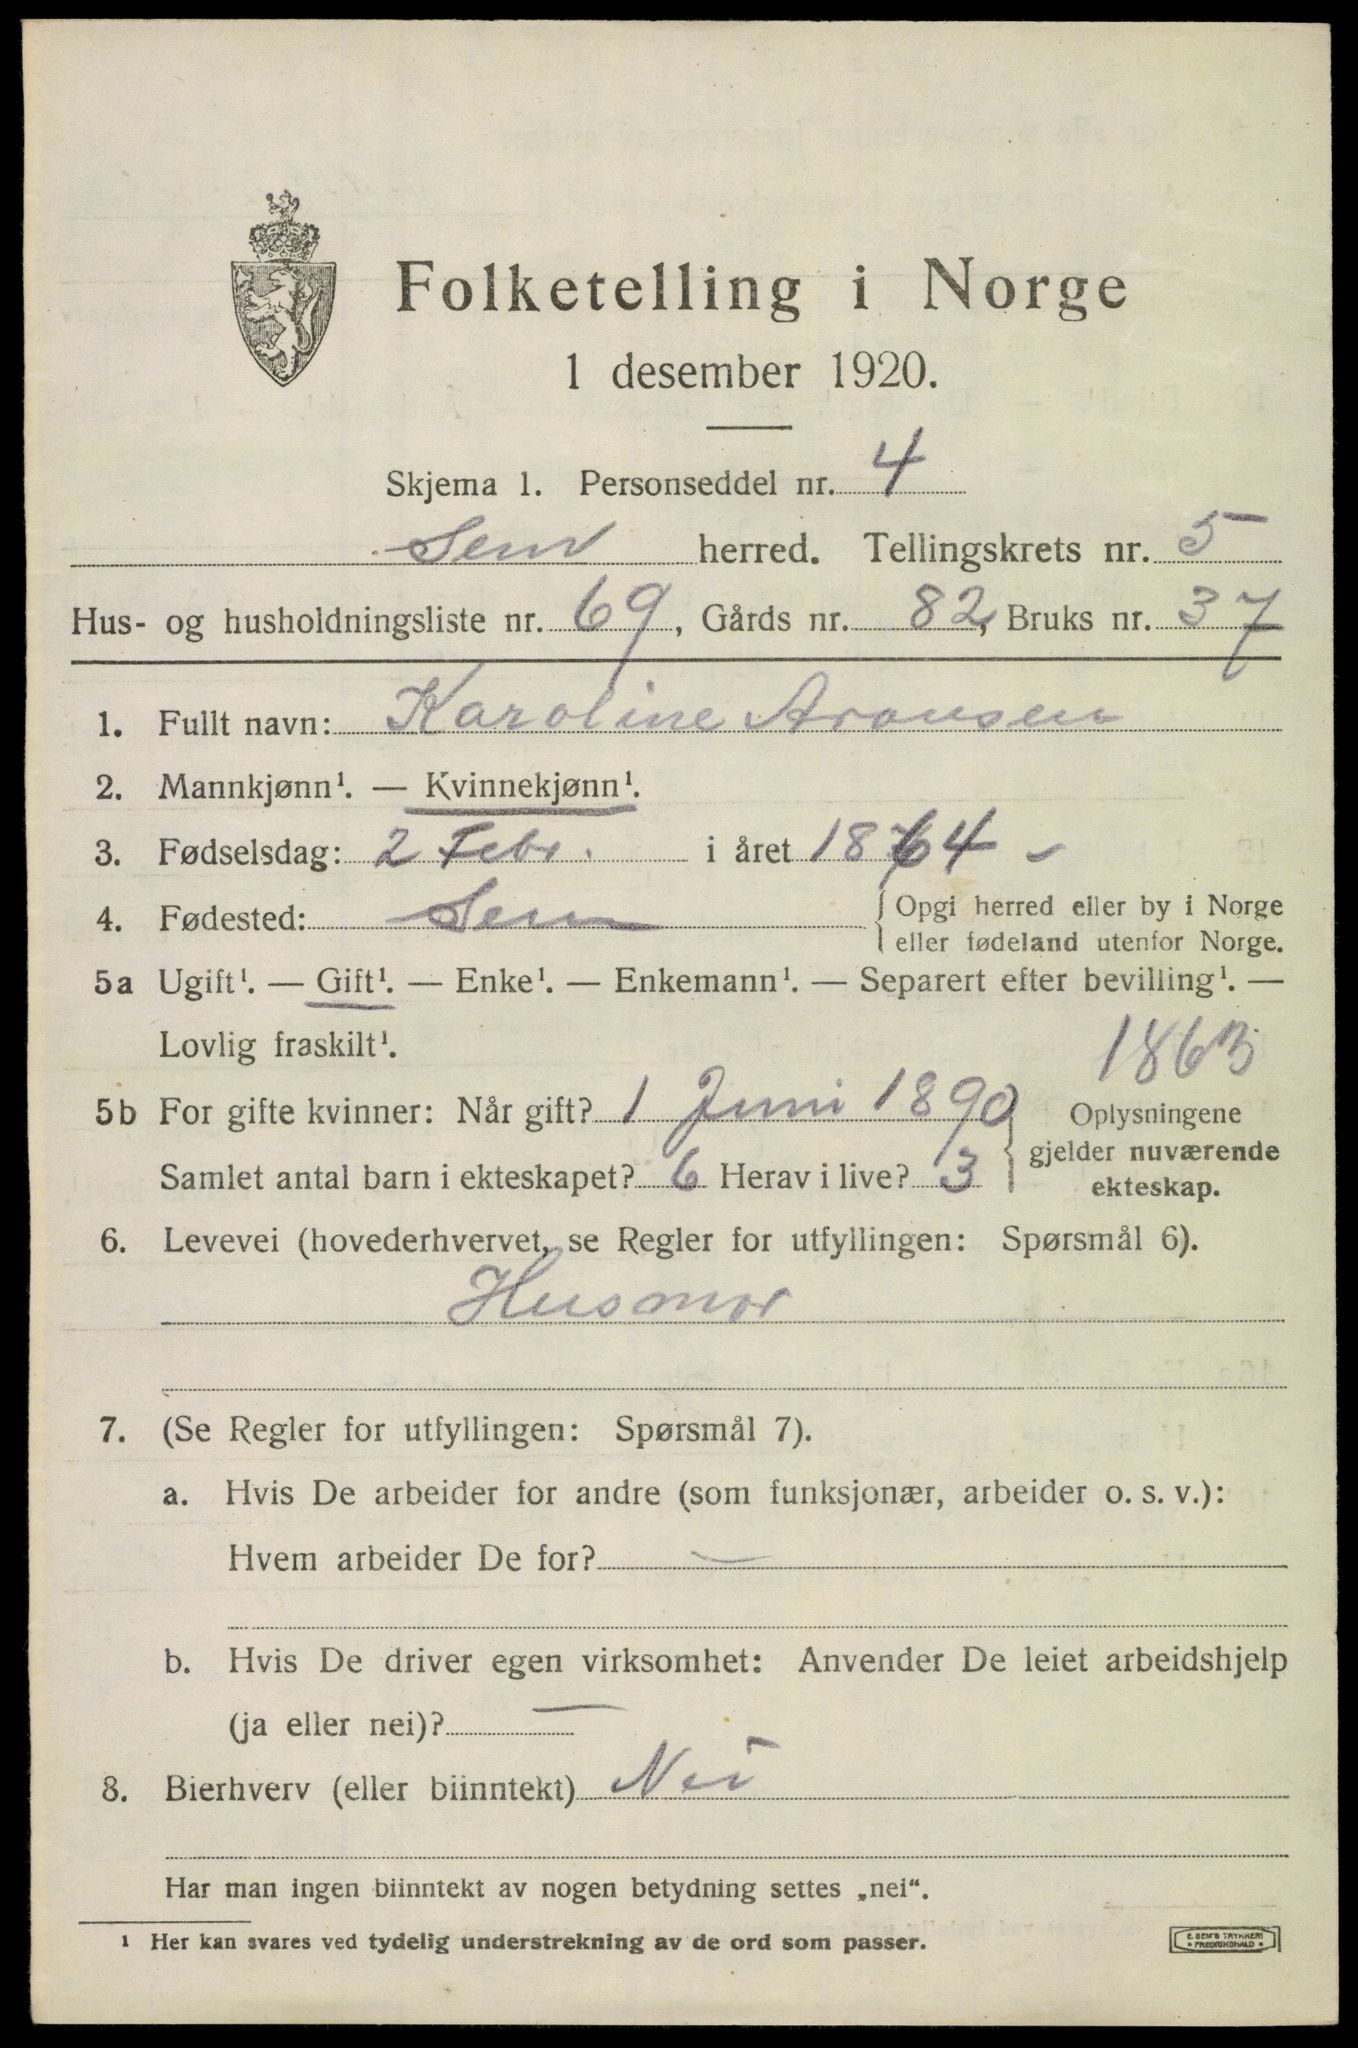 Folketelling i Norge
1 desember 1920.
Skjema 1. Personseddel nr. 4
Sem herred. Tellingskrets nr. 5
Hus- og husholdningsliste nr. 69, Gårds nr. 82, Bruks nr. 37
1. Fullt navn: Karoline Aronsen
2. Mannkjønn¹. — Kvinnekjønn¹.
3. Fødselsdag: 2 Febr. i året 1864
4. Fødested: Sem
Opgi herred eller by i Norge
eller fødeland utenfor Norge.
5a Ugift¹. — Gift¹. — Enke¹. — Enkemann¹. — Separert efter bevilling¹. —
Lovlig fraskilt¹.
1863
5b For gifte kvinner: Når gift? 1 Juni 1890
Samlet antal barn i ekteskapet? 6 Herav i live? 3
Oplysningene
gjelder nuværende
ekteskap.
6. Levevei (hovederhvervet, se Regler for utfyllingen: Spørsmål 6).
Husmor
7. (Se Regler for utfyllingen: Spørsmål 7).
a. Hvis De arbeider for andre (som funksjonær, arbeider o. s. v.):
Hvem arbeider De for? —
b. Hvis De driver egen virksomhet: Anvender De leiet arbeidshjelp
(ja eller nei)? —
8. Bierhverv (eller biinntekt) Nei
Har man ingen biinntekt av nogen betydning settes „nei".
¹ Her kan svares ved tydelig understrekning av de ord som passer.
E. SEM'S TRYKKERI
• FREDRIKSHALD •